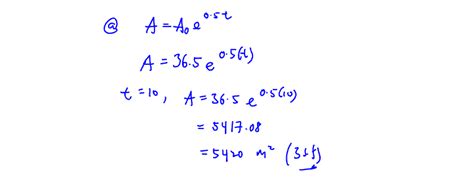 ⓐ A = A₀e^0.5t
A = 36.5 e^0.5(t)
t = 10, A = 36.5 e^0.5(10)
= 5417.08
= 5420 m² (3sf)